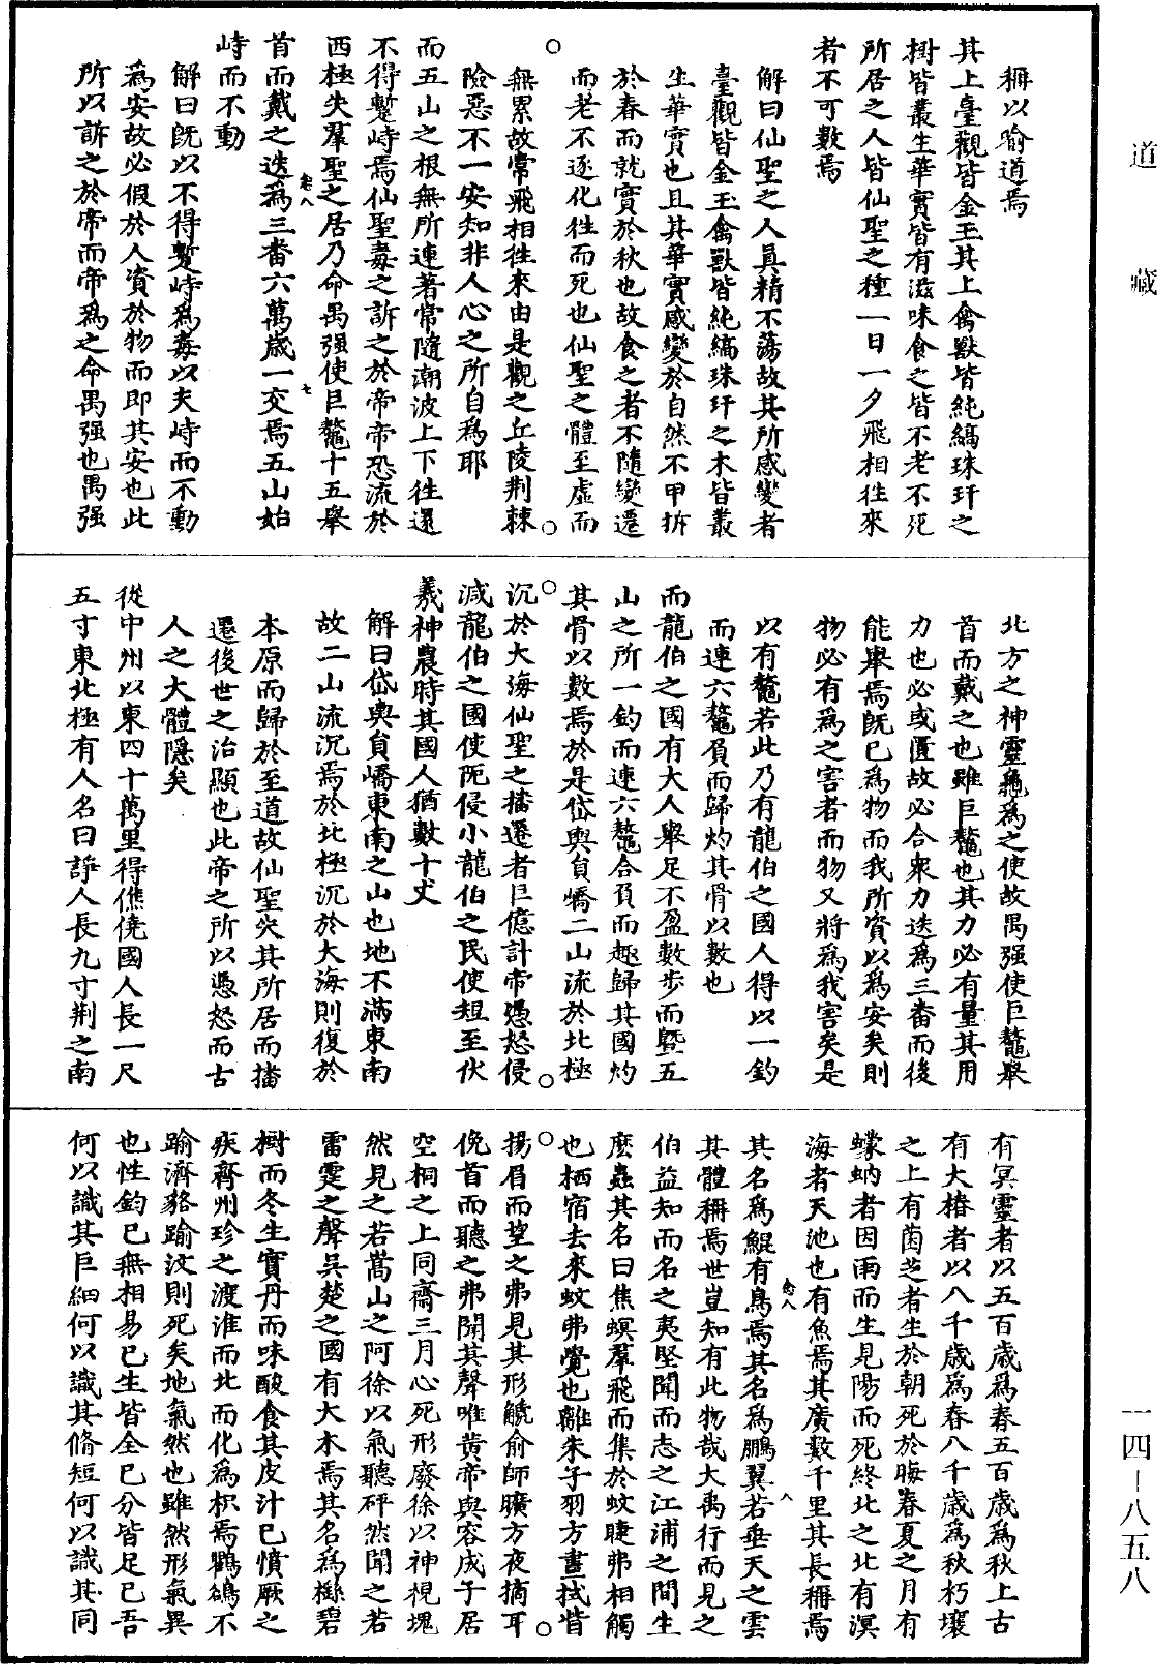 道藏
稱以喻道焉
其上臺觀皆金玉其上禽獸皆純縞珠玕之
樹皆叢生華實皆有滋味食之皆不老不死
所居之人皆仙聖之種一日一夕飛相往來
者不可數焉
解曰仙聖之人真精不蕩故其所感變者
臺觀皆金玉禽獸皆純縞珠玕之木皆叢
生華實也且其華實感變於自然不甲拆
於春而就實於秋也故食之者不隨變遷
而老不逐化往而死也仙聖之體至虛而
無累故常飛相往來由是觀之丘陵荆棘
險惡不一安知非人心之所自為耶
而五山之根無所連著常隨潮波上下往還
不得蹔峙焉仙聖毒之訴之於帝帝恐流於
西極失羣聖之居乃命禺强使巨鼇十五舉
首而戴之迭為三番六萬歲一交焉五山始
峙而不動
解曰既以不得蹔峙為毒以夫峙而不動
為安故必假於人資於物而即其安也此
所以訴之於帝而帝為之命禺强也禺强
北方之神靈龜為之使故禺强使巨鼇舉
首而戴之也雖巨鼇也其力必有量其用
力也必或匱故必合衆力迭為三番而後
能舉焉既已為物而我所資以為安矣則
物必有為之害者而物又將為我害矣是
以有鼇若此乃有龍伯之國人得以一釣
而連六鼇負而歸灼其骨以數也
而龍伯之國有大人舉足不盈數步而暨五
山之所一釣而連六鼇合負而趣歸其國灼
其骨以數焉於是岱輿員嶠二山流於北極
沉於大海仙聖之播遷者巨億計帝憑怒侵
減龍伯之國使阨侵小龍伯之民使短至伏
羲神農時其國人猶數十丈
解曰岱輿員嶠東南之山也地不滿東南
故二山流沉焉於北極沉於大海則復於
本原而歸於至道故仙聖失其所居而播
遷後世之治顯也此帝之所以憑怒而古
人之大體隱矣
從中州以東四十萬里得僬僥國人長一尺
五寸東北極有人名曰諍人長九寸荆之南
有冥靈者以五百歲為春五百歲為秋上古
有大椿者以八千歲為春八千歲為秋朽壤
之上有菌芝者生於朝死於晦春夏之月有
蠓蚋者因雨而生見陽而死終北之北有溟
海者天池也有魚焉其廣數千里其長稱焉
其名為鯤有鳥焉其名為鵬翼若垂天之雲
其體稱焉世豈知有此物哉大禹行而見之
伯益知而名之夷堅聞而志之江浦之間生
麽蟲其名曰焦螟羣飛而集於蚊睫弗相觸
也栖宿去來蚊弗覺也離朱子羽方晝拭眥
揚眉而望之弗見其形䚦俞師曠方夜擿耳
俛首而聽之弗聞其聲唯黄帝與容成子居
空桐之上同齋三月心死形廢徐以神視塊
然見之若嵩山之阿徐以氣聽砰然聞之若
雷霆之聲吳楚之國有大木焉其名為櫾碧
樹而冬生實丹而味酸食其皮汁已憤厥之
疾齊州珍之渡淮而北而化為枳焉鸜鵒不
踰濟貉踰汶則死矣地氣然也雖然形氣異
也性鈞已無相易已生皆全已分皆足已吾
何以識其巨細何以識其脩短何以識其同
卷八
七
卷八
八
一四—八五八